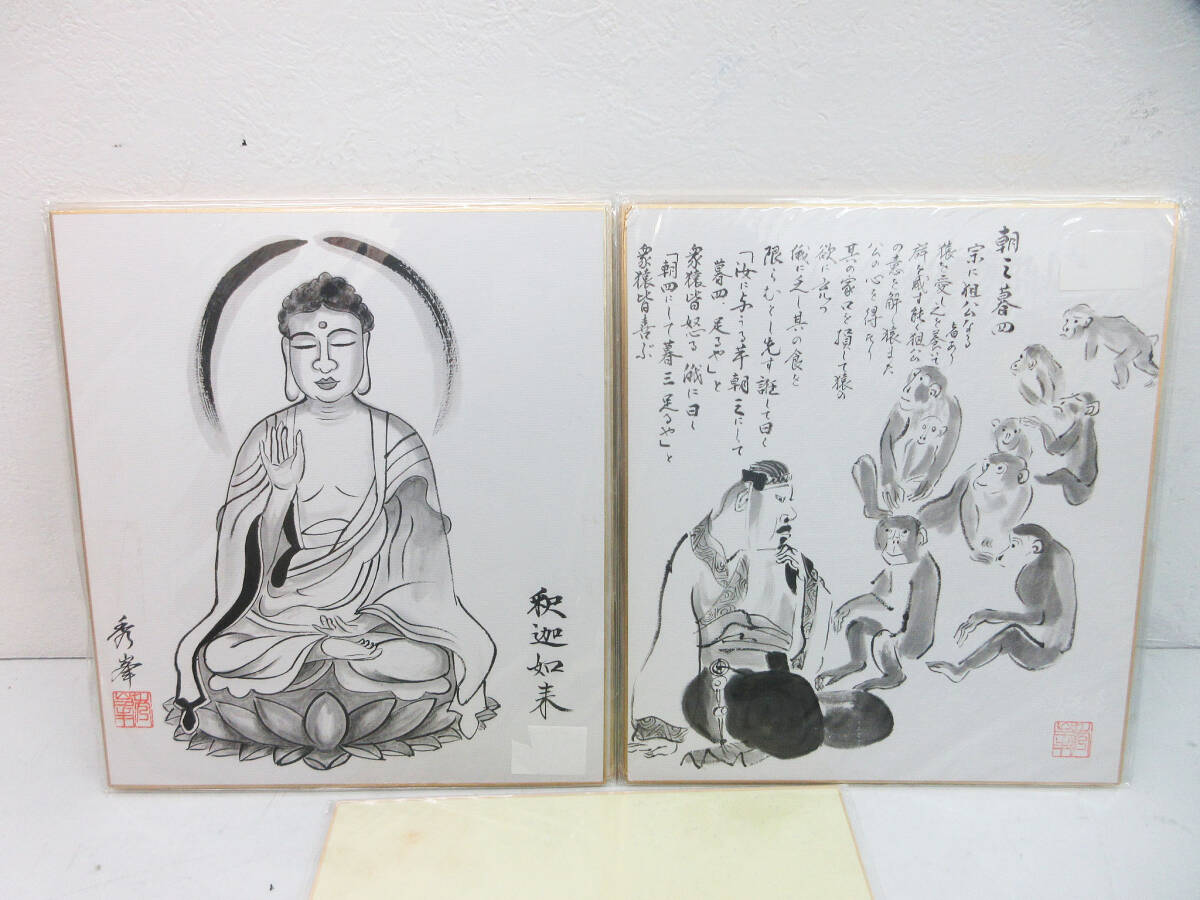 釈迦如来
秀峯
朝三暮四
宗に狙公なる者あり
猿を愛し之を養いて
群を成す能く狙公
の意を解し猿また
公の心を得たり
其の家口を損して猿の
欲に充つ
俄に乏し其の食を
限らむとし先ず誑して曰く
「汝に与うる芧朝三にして
暮四 足るや」と
衆猿皆怒る 俄に曰く
「朝四にして暮三足るや」と
衆猿皆喜ぶ